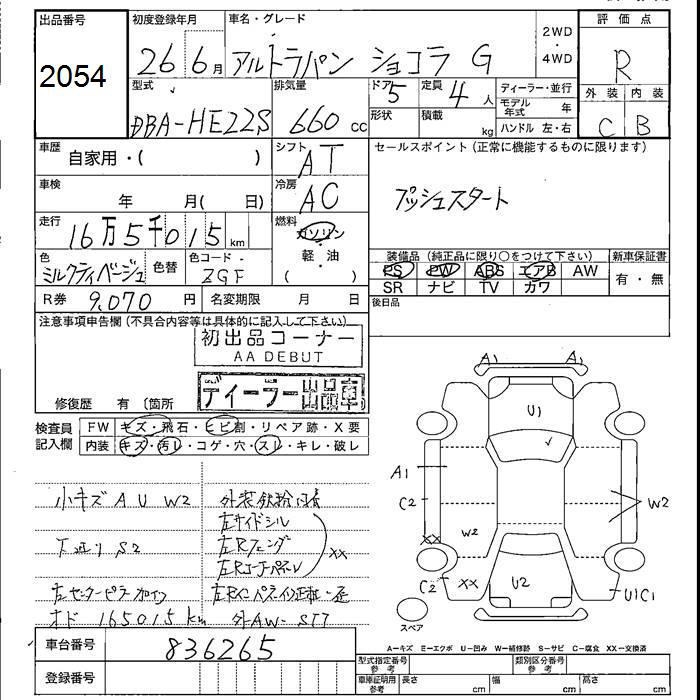 出品番号 初度登録年月 車名・グレード 2WD ・ 4WD 評価点
2054 26年6月 アルトラパン ショコラ G R
型式 排気量 ドア 定員 ディーラー・並行 外装 内装
DBA-HE22S 660cc 5 4人 モデル年式 年 C B
形状 積載 kg ハンドル 左・右
車歴 自家用・( ) シフト AT セールスポイント(正常に機能するものに限ります)
車検 年 月( 日) 冷房 AC プッシュスタート
走行 16万5千015km 燃料 ガソリン 軽・油 ( )
色 ミルクティベージュ 色替 色コード ZGF 装備品(純正品に限り○をつけて下さい) 新車保証書
PS PW ABS エアB AW 有・無
SR ナビ TV カワ
R券 9,070円 名変期限 月 日 後日品
注意事項申告欄(不具合内容等は具体的に記入して下さい)
初出品コーナー
AA DEBUT
ディーラー出品車
修復歴 有〔箇所
検査員記入欄 FW キズ・飛石・ヒビ割・リペア跡・X要
内装 キズ・汚レ・コゲ・穴・スレ・キレ・破レ
小キズ A U W2 外装鉄粉
左サイドシル
下廻り S2 左Rフェンダ XX
左Rコーナーパネル
左センターピラー
オド 165015km 外AW- ST7
A1 A1
U1
A1
C2 W2
W2
XX
C2 XX U2 U1C1
スペア
A-キズ E-エクボ U-凹み W-補修跡 S-サビ C-腐食 XX-交換済
車台番号 836265
型式指定番号 参考 類別区分番号 参考
登録番号 車庫証明用 参考 長さ cm 幅 cm 高さ cm